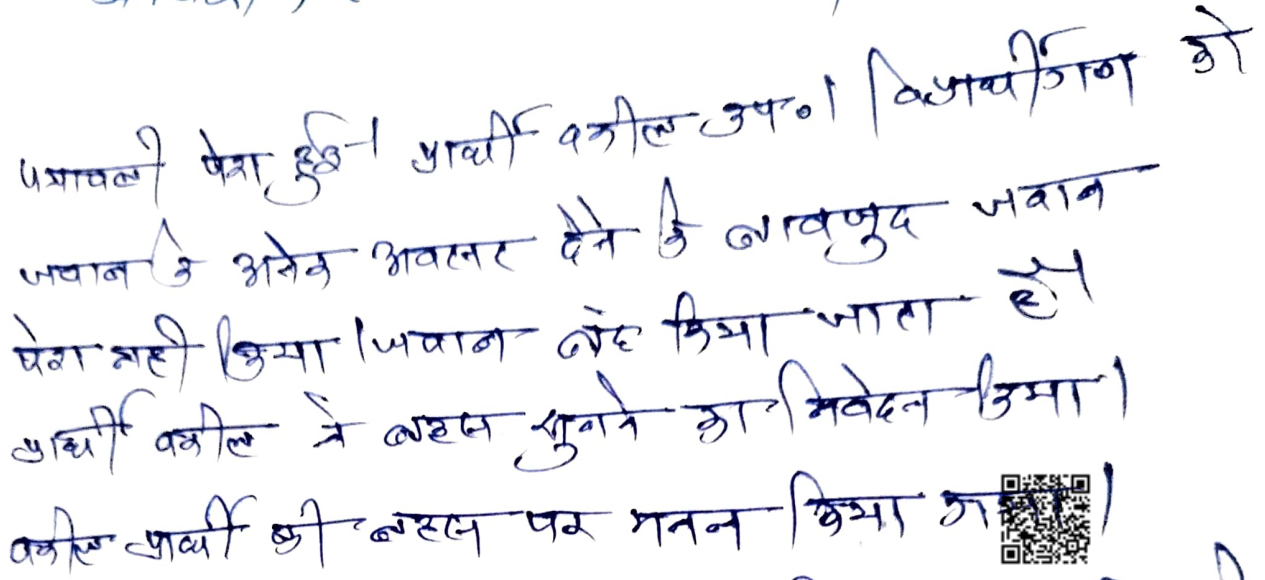 पत्रावली पेश हुई। प्रार्थी वकील उप०। विप्रार्थीगण को
जवाब के अनेक अवसर देने के बावजुद जवाब
पेश नही किया। जवाब बंद किया जाता है।
प्रार्थी वकील ने बहस सुनने का निवेदन किया।
वकील प्रार्थी की बहस पर मनन किया गया।